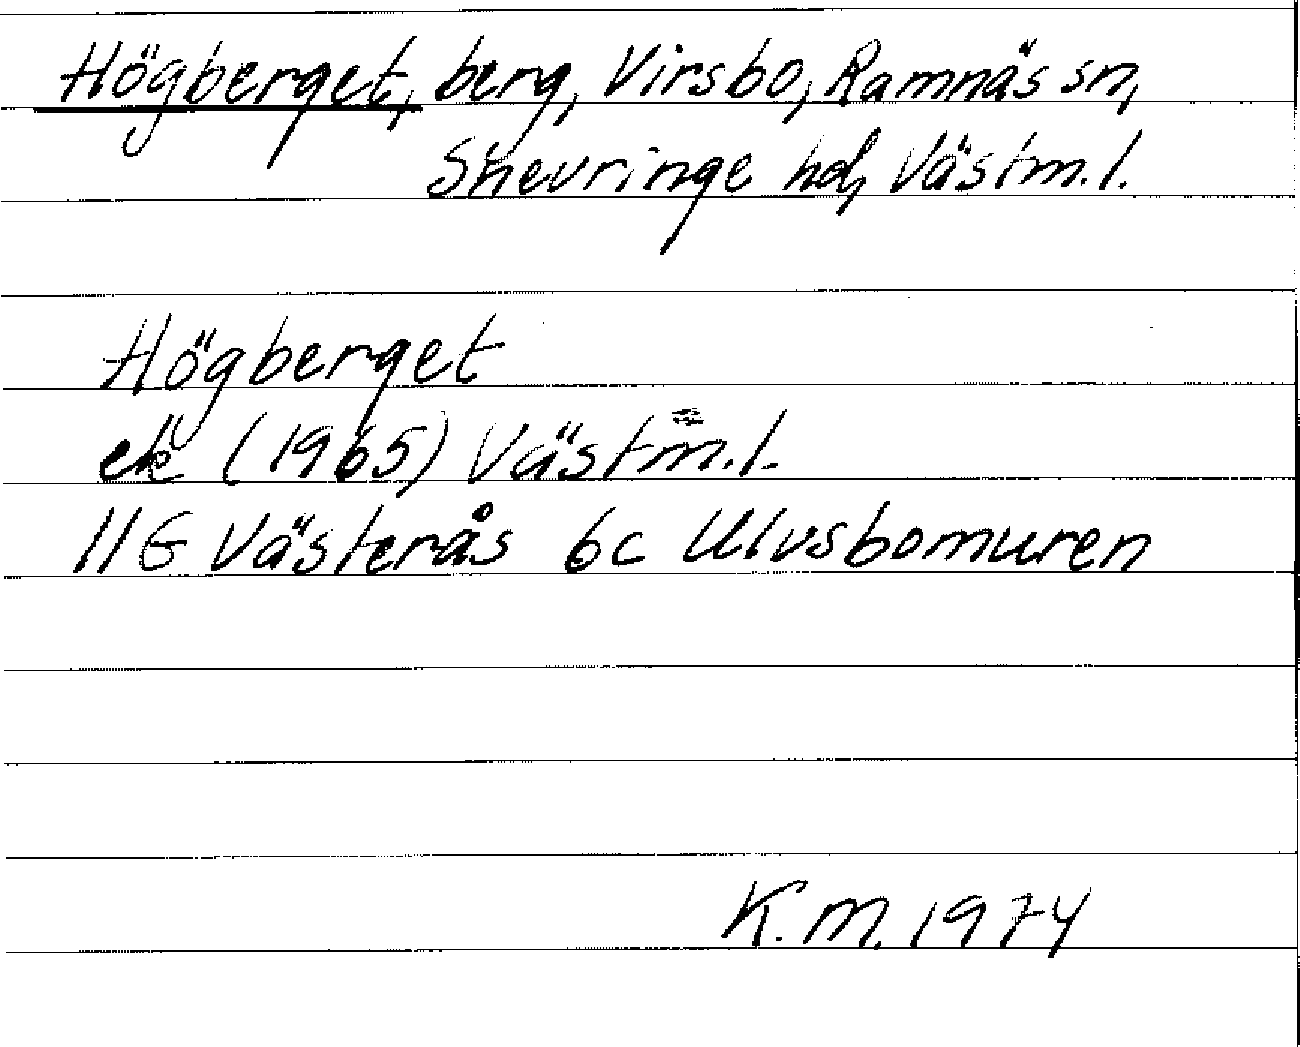 Högberget, berg, Virsbo, Ramnäs sn,
Snevringe hd, Västm.l.
Högberget
ek (1965) Västm.l.
11G Västerås 6c Ulvsbomuren
K.M. 1974